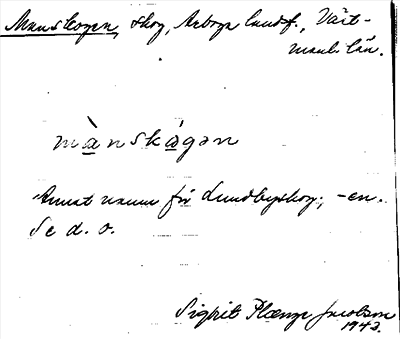 Manskogen, skog, Arboga landsf., Väst-
manl. län.
mà̱nskǻ̱gən
Annat namn för Lundbyskog, -en.
Se d. o.
Sigrit Plænge Jacobson
1943.